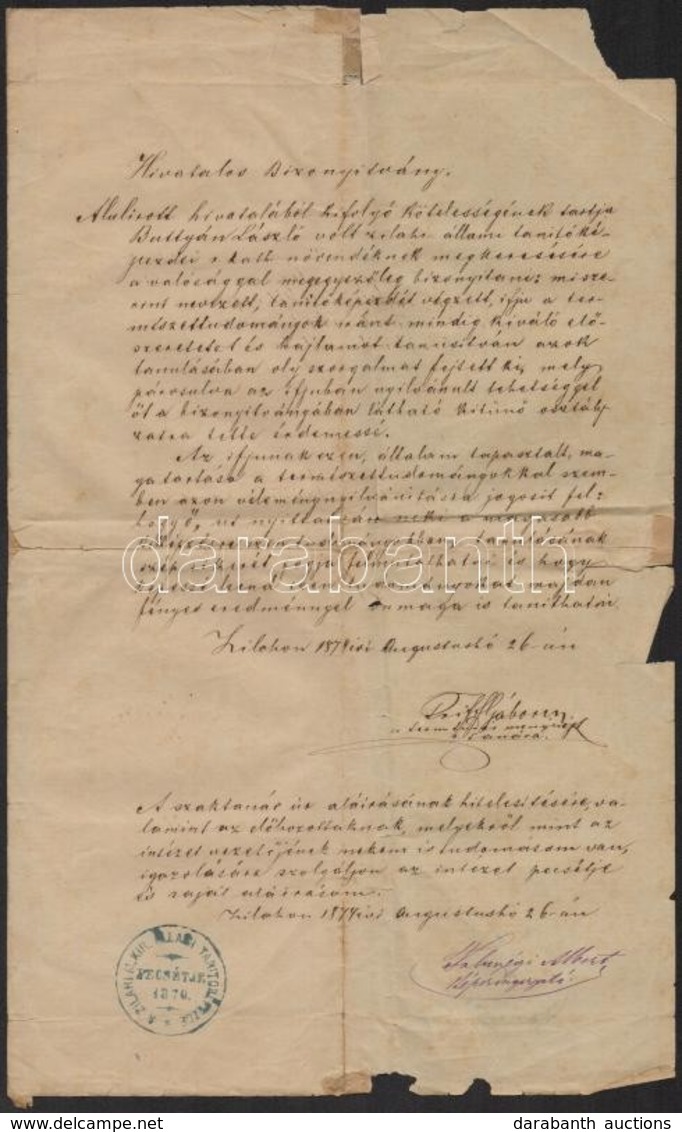 Hivatalos Bizonyitvány.
Alulirott hivatalából kifolyó kötelességének tartja
Battyán László volt zilahi állami tanitóké-
pezdei r. kath. növendéknek megkeresésére
a valósággal megegyezőleg bizonyitani: misze-
rint nevezett, tanitóképezdét végzett, ifju a ter-
mészettudományok iránt mindig kiváló elő-
szeretetet és hajlamot tanusitván azok
tanulásában oly szorgalmat fejtett ki, mely
párosulva az ifjuban nyilvánult tehetséggel
őt a bizonyitványában látható kitünő osztály-
zatra tette érdemessé.
Az ifjunak ezen, általam tapasztalt, ma-
gatartása a természettudományokkal szem-
ben azon véleménynyilvánitásra jogosit fel:
hogy, ut nyittatván neki a magasabb
tanulásának
szép sikerét fogja felmutathatni és hogy
majdan
fényes eredménnyel önmaga is tanithatni.
Zilahon 187 évi Augustushó 26-án
Gáborm.
tanára.
A szaktanár úr aláirásának hitelesitésére, va-
lamint az előbozottaknak, melyekről mint az
intézet vezetőjének nekem is tudomásom van,
igazolására szolgáljon az intézet pecsétje
és saját aláirásom.
Zilahon 187 évi Augustushó 26-án
A ZILAHI M. KIR. ÁLLAMI TANITÓKÉPEZDE
PECSÉTJE
1870.
Albert,
darabanth
darabanth auctions